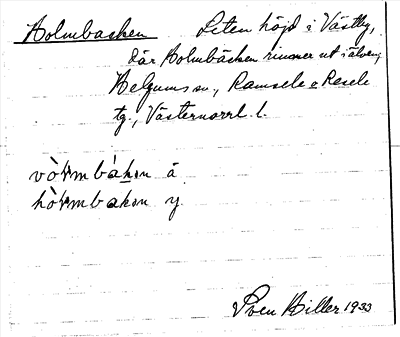 Holmbacken Liten höjd i Västby,
där Holmbäcken rinner ut i älven,
Helgums sn., Ramsele o Resele
tg., Västernorrl. l.
vòɽmbákən ä
hòɽmbakən y
Sven Hiller 1933